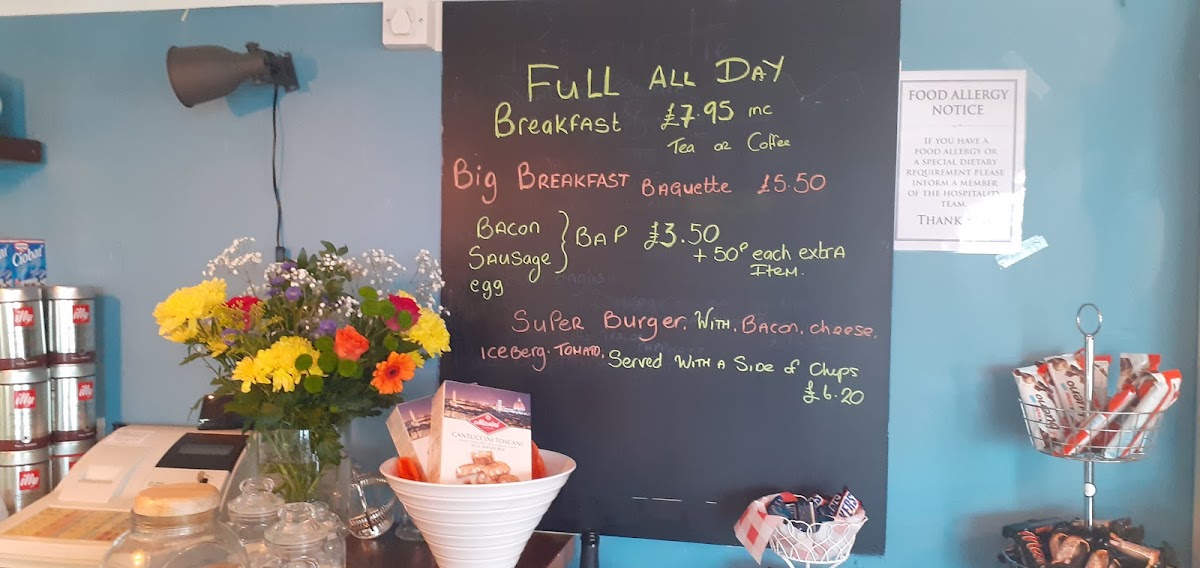 FULL ALL DAY
Breakfast £7.95 inc
Tea or Coffee
Big BREAKFAST BAquette £5.50
BACON
SAUSage } BAP £3.50
egg
+ 50P each extrA
ITEM.
SuPer Burger. WITH. BACON, cheese.
ICeBerg. TOMATO. Served WITH A SIDe of Chips
£6.20
FOOD ALLERGY
NOTICE
IF YOU HAVE A
FOOD ALLERGY OR
A SPECIAL DIETARY
REQUIREMENT PLEASE
INFORM A MEMBER
OF THE HOSPITALITY
TEAM.
THANK
illy
illy
illy
illy
illy
CANTUCCINI TOSCANI
bueno